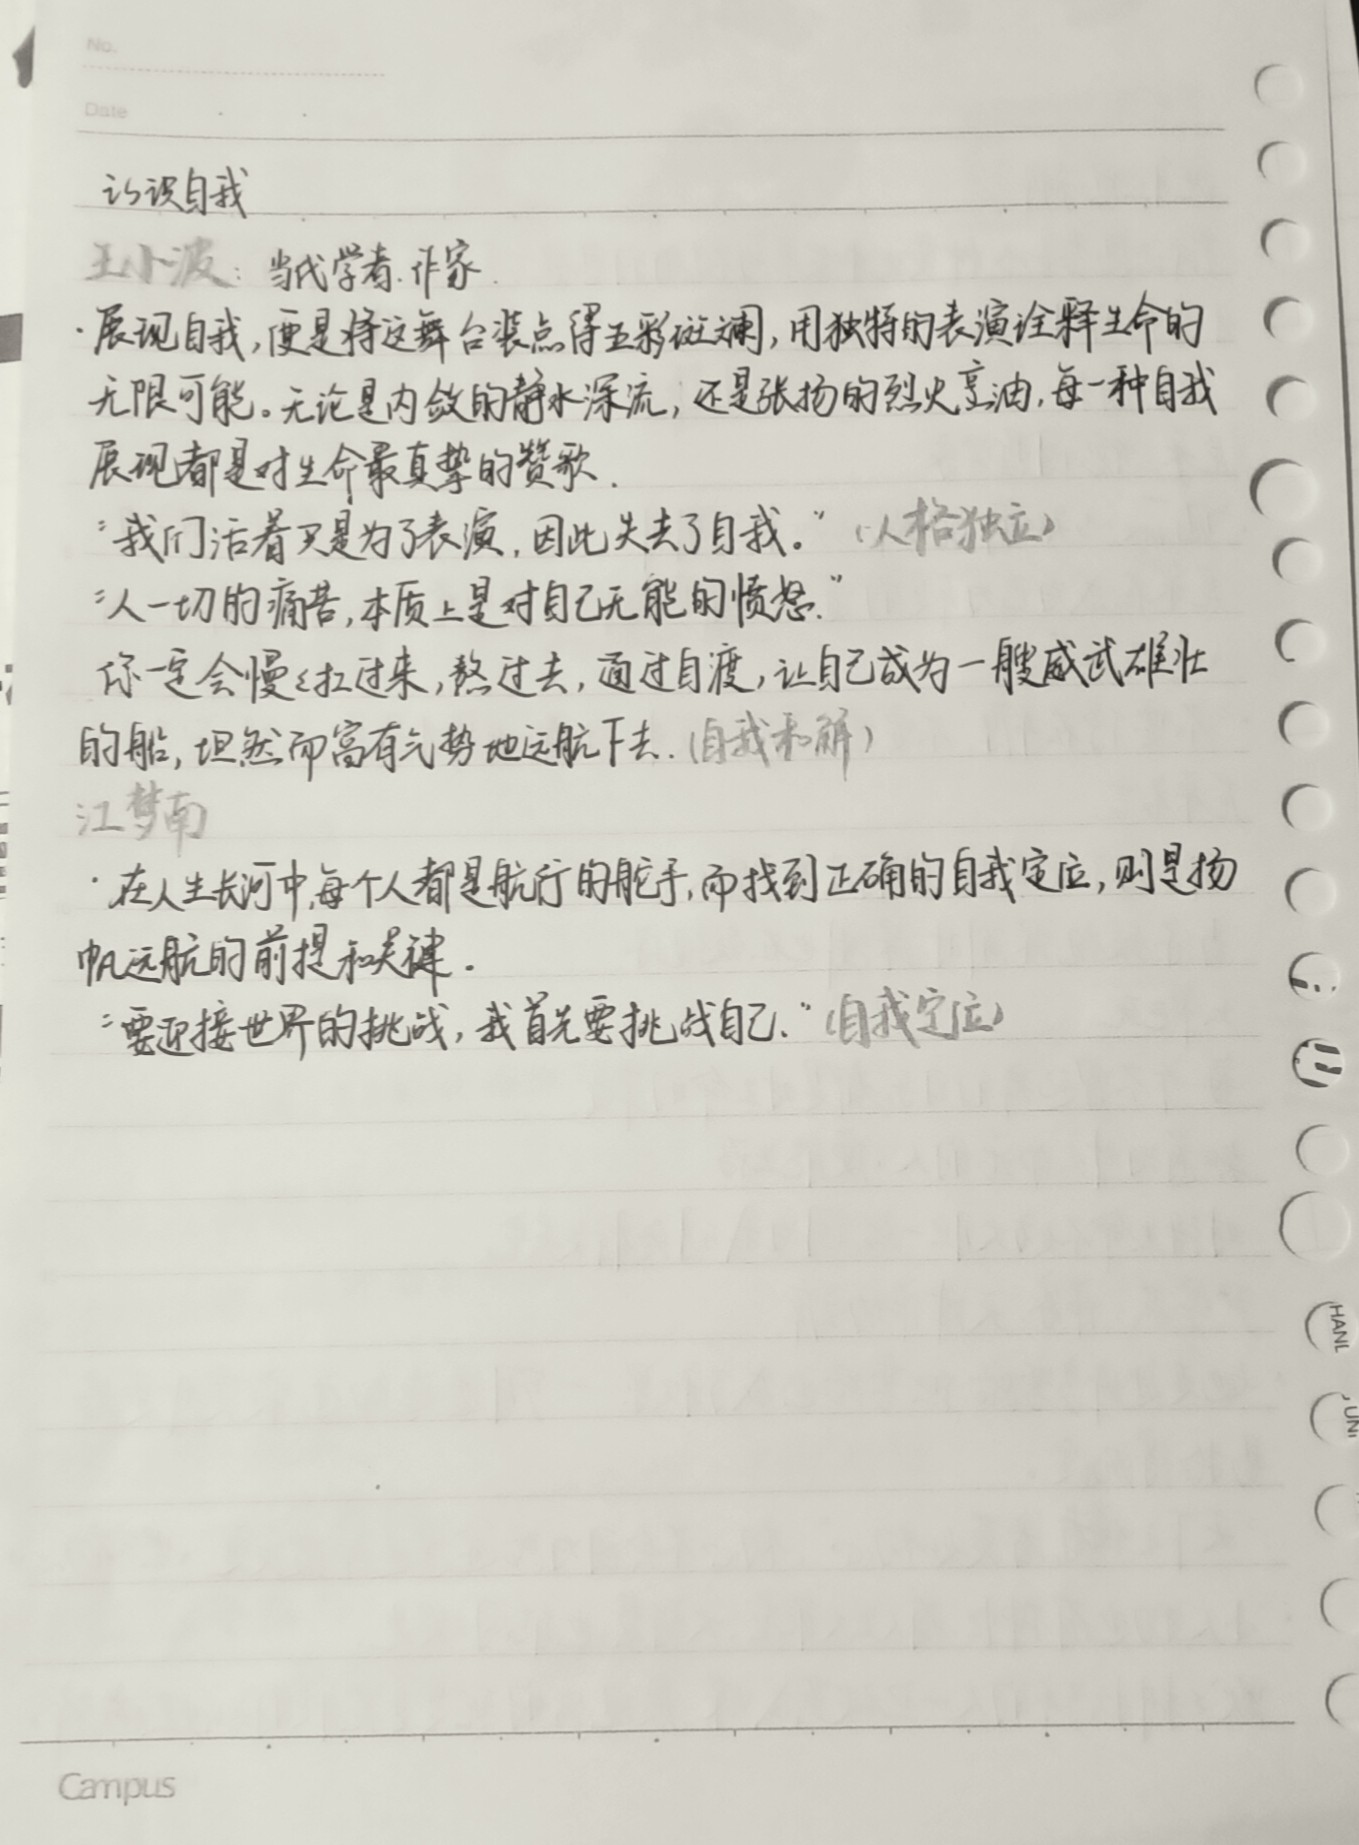 No.
Date
认识自我
王小波：当代学者.作家.
·展现自我,便是将这舞台装点得五彩斑斓,用独特的表演诠释生命的
无限可能。无论是内敛的静水深流,还是张扬的烈火烹油,每一种自我
展现都是对生命最真挚的赞歌.
"我们活着只是为了表演,因此失去了自我。"（人格独立）
"人一切的痛苦,本质上是对自己无能的愤怒."
你一定会慢々扛过来,熬过去,通过自渡,让自己成为一艘威武雄壮
的船,坦然而富有气势地远航下去.（自我和解）
江梦南
·在人生长河中,每个人都是航行的舵手,而找到正确的自我定位,则是扬
帆远航的前提和关键.
"要迎接世界的挑战,我首先要挑战自己."（自我定位）
Campus
HANL
UNI